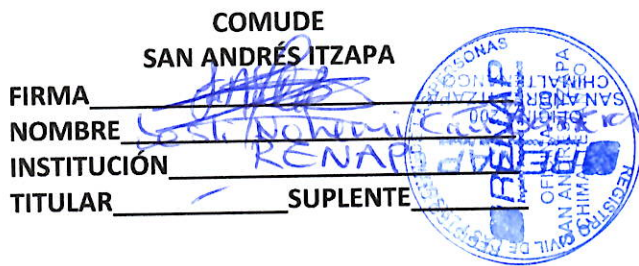 COMUDE
SAN ANDRÉS ITZAPA
FIRMA
NOMBRE Nohemi
INSTITUCIÓN RENAP
TITULAR SUPLENTE
REGISTRO CIVIL DE LAS PERSONAS
RENAP
SAN ANDRES ITZAPA
CHIMALTENANGO